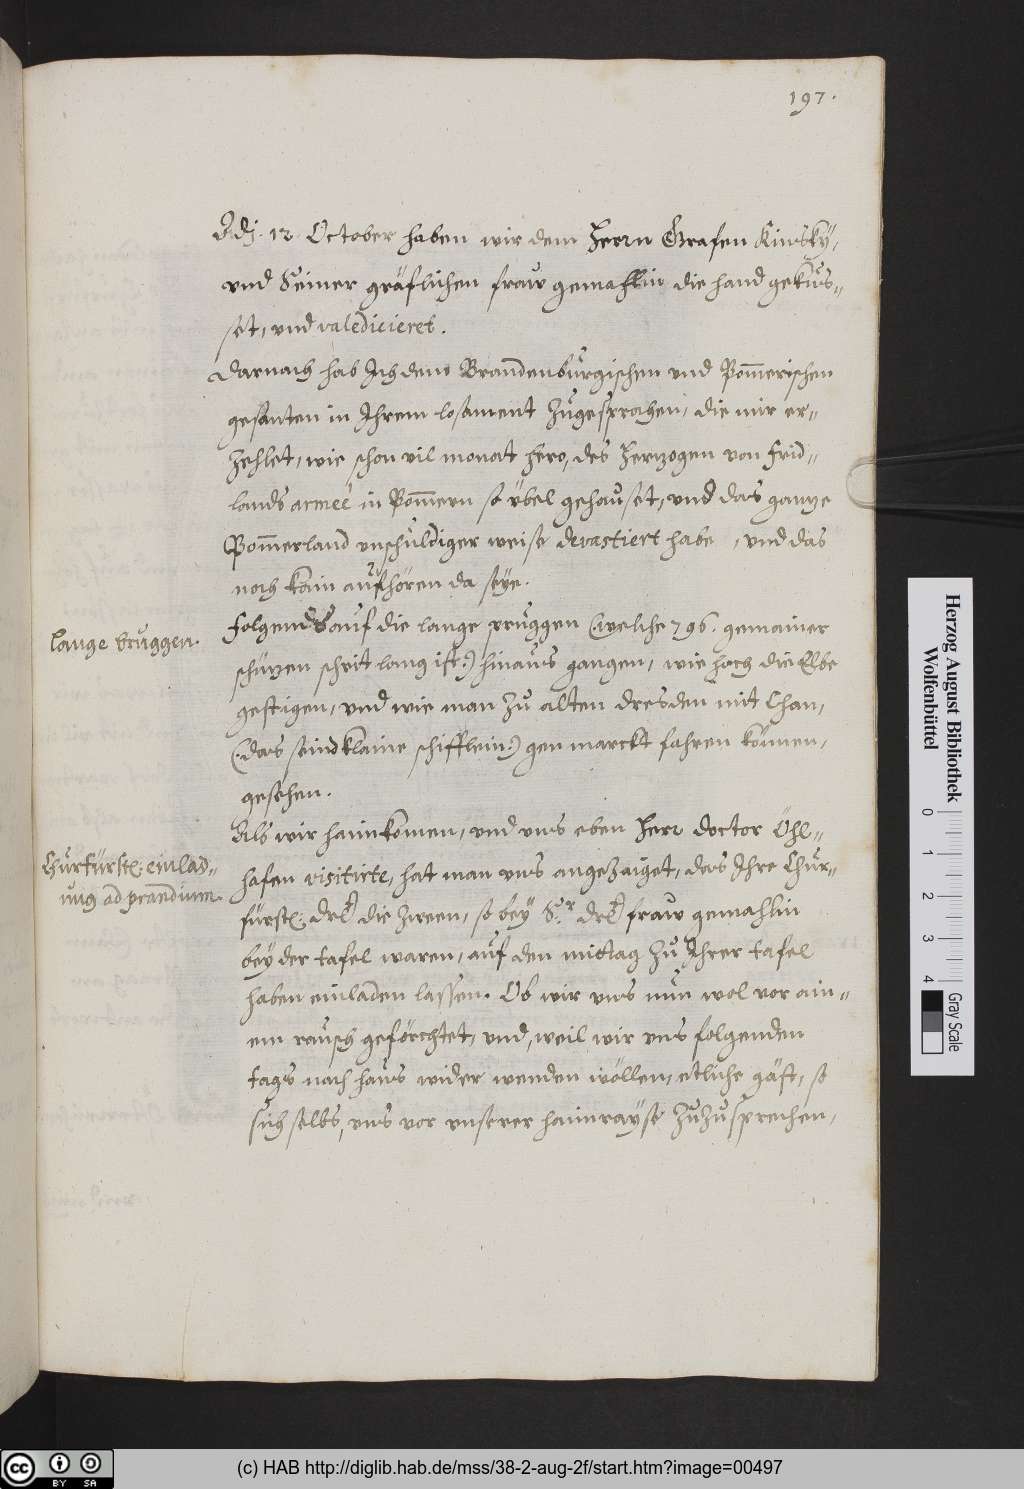 197.
Adj. 12. October haben wir dem Herrn Grafen Kinsky,
und Seiner gräflichen fraw gemahlin die hand gekůs=
set, und valedicieret.
Darnach hab Ich dem Brandenbůrgischen und Pom̄erischen
gesanten in Ihrem losament zůgesprochen, die mir er=
zehlet, wie schon vil monat hero, des Hertzogen von Frid=
lands armee in Pom̄ern so übel gehauset, und das gantze
Pom̄erland unschůldiger weise devastiert habe, und das
noch kain aůfhören da seye.
lange bruggen.
Folgends auf die lange pruggen (welche 796. gemainer
schüzen schrit lang ist:) hinaus gangen, wie hoch die Elbe
gestigen, und wie man zů alten Dresden mit Chan,
(:das seind klaine schifflein:) gen marckt fahren können,
gesehen.
Churfürstl: einlad=
ung ad prandium.
Als wir haimkomen, und uns eben Herr doctor Öhl=
hafen visitirte, hat man uns angezaiget, das Ihre Chůr=
fürstl: Drl: die zween, so bey Sr. Drl: fraw gemahlin
bey der tafel waren, aůf den mittag zů Ihrer tafel
haben einladen lassen. Ob wir uns nůn wol vor ain=
em rausch geförchtet, und, weil wir uns folgenden
tags nach haus wider wenden wöllen, etliche gäst, so
sich selbs, uns vor unserer haimrayse zůzůsprechen,
Herzog August Bibliothek
Wolfenbüttel
0 1 2 3 4
Gray Scale
cc BY SA
(c) HAB http://diglib.hab.de/mss/38-2-aug-2f/start.htm?image=00497